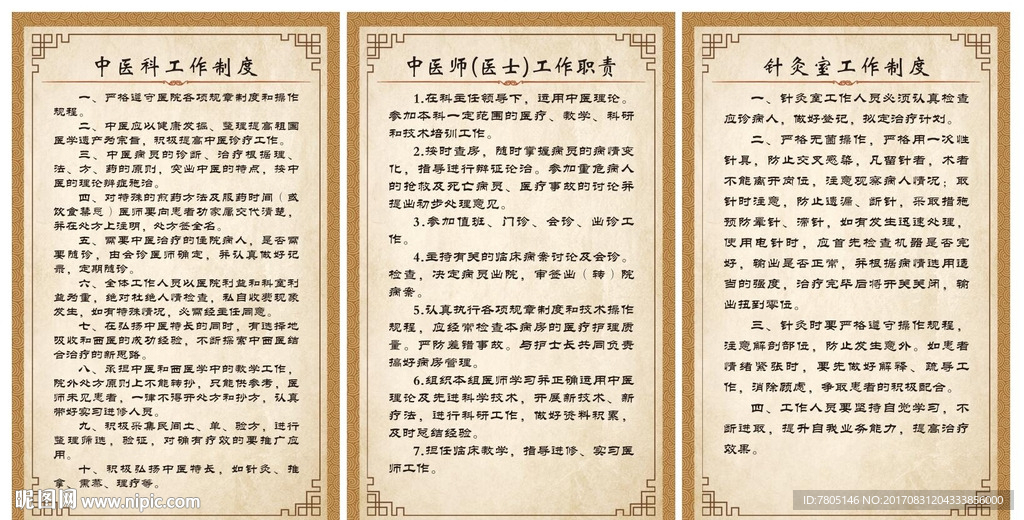 中医科工作制度
一、严格遵守医院各项规章制度和操作
规程。
二、中医应以健康发掘、整理提高祖国
医学遗产为宗旨，积极提高中医诊疗工作。
三、中医病员的诊断、治疗根据理、
法、方、药的原则，突出中医的特点，按中
医的理论辨症施治。
四、对特殊的煎药方法及服药时间（或
饮食禁忌）医师要向患者切家属交代清楚，
并在处方上注明，处方签全名。
五、需要中医治疗的住院病人，是否需
要随诊，由会诊医师确定，并认真做好记
录，定期随诊。
六、全体工作人员以医院利益和科室利
益为重，绝对杜绝人情检查，私自收费现象
发生，如有特殊情况，必需经主任同意。
七、在弘扬中医特长的同时，有选择地
吸收和西医的成功经验，不断探索中西医结
合治疗的新思路。
八、承担中医和西医学中的教学工作，
院外处方原则上不能转抄，只能供参考，医
师未见患者，一律不得开处方和抄方，认真
带好实习进修人员。
九、积极采集民间土、单、验方，进行
整理筛选，验证，对确有疗效的要推广应
用。
十、积极弘扬中医特长，如针灸、推
拿、熏蒸、理疗等。
中医师(医士)工作职责
1.在科主任领导下，运用中医理论。
参加本科一定范围的医疗、教学、科研
和技术培训工作。
2.按时查房，随时掌握病员的病情变
化，指导进行辩证论治。参加重危病人
的抢救及死亡病员、医疗事故的讨论并
提出初步处理意见。
3.参加值班、门诊、会诊、出诊工
作。
4.主持有关的临床病案讨论及会诊。
检查，决定病员出院，审签出（转）院
病案。
5.认真执行各项规章制度和技术操作
规程，应经常检查本病房的医疗护理质
量。严防差错事故。与护士长共同负责
搞好病房管理。
6.组织本组医师学习并正确运用中医
理论及先进科学技术，开展新技术、新
疗法，进行科研工作，做好资料积累，
及时总结经验。
7.担任临床教学，指导进修、实习医
师工作。
针灸室工作制度
一、针灸室工作人员必须认真检查
应诊病人，做好登记，拟定治疗计划。
二、严格无菌操作，严格用一次性
针具，防止交叉感染，凡留针者，术者
不能离开岗位，注意观察病人情况；取
针时注意，防止遗漏、断针，采取措施
预防晕针、滞针，如有发生迅速处理，
使用电针时，应首先检查机器是否完
好，输出是否正常，并根据病情选用适
当的强度，治疗完毕后将开关关闭，输
出扭到零位。
三、针灸时要严格遵守操作规程，
注意解剖部位，防止发生意外。如患者
情绪紧张时，要先做好解释、疏导工
作，消除顾虑，争取患者的积极配合。
四、工作人员要坚持自觉学习，不
断进取，提升自我业务能力，提高治疗
效果。
昵图网 www.nipic.com
ID:7805146 NO:20170831204333856000